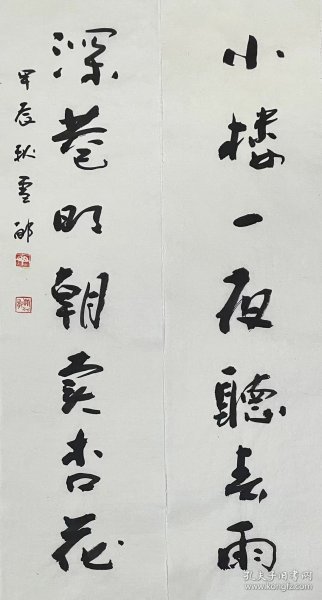 小樓一夜聽春雨
深巷明朝賣杏花
甲辰秋雪
孔夫子旧书网